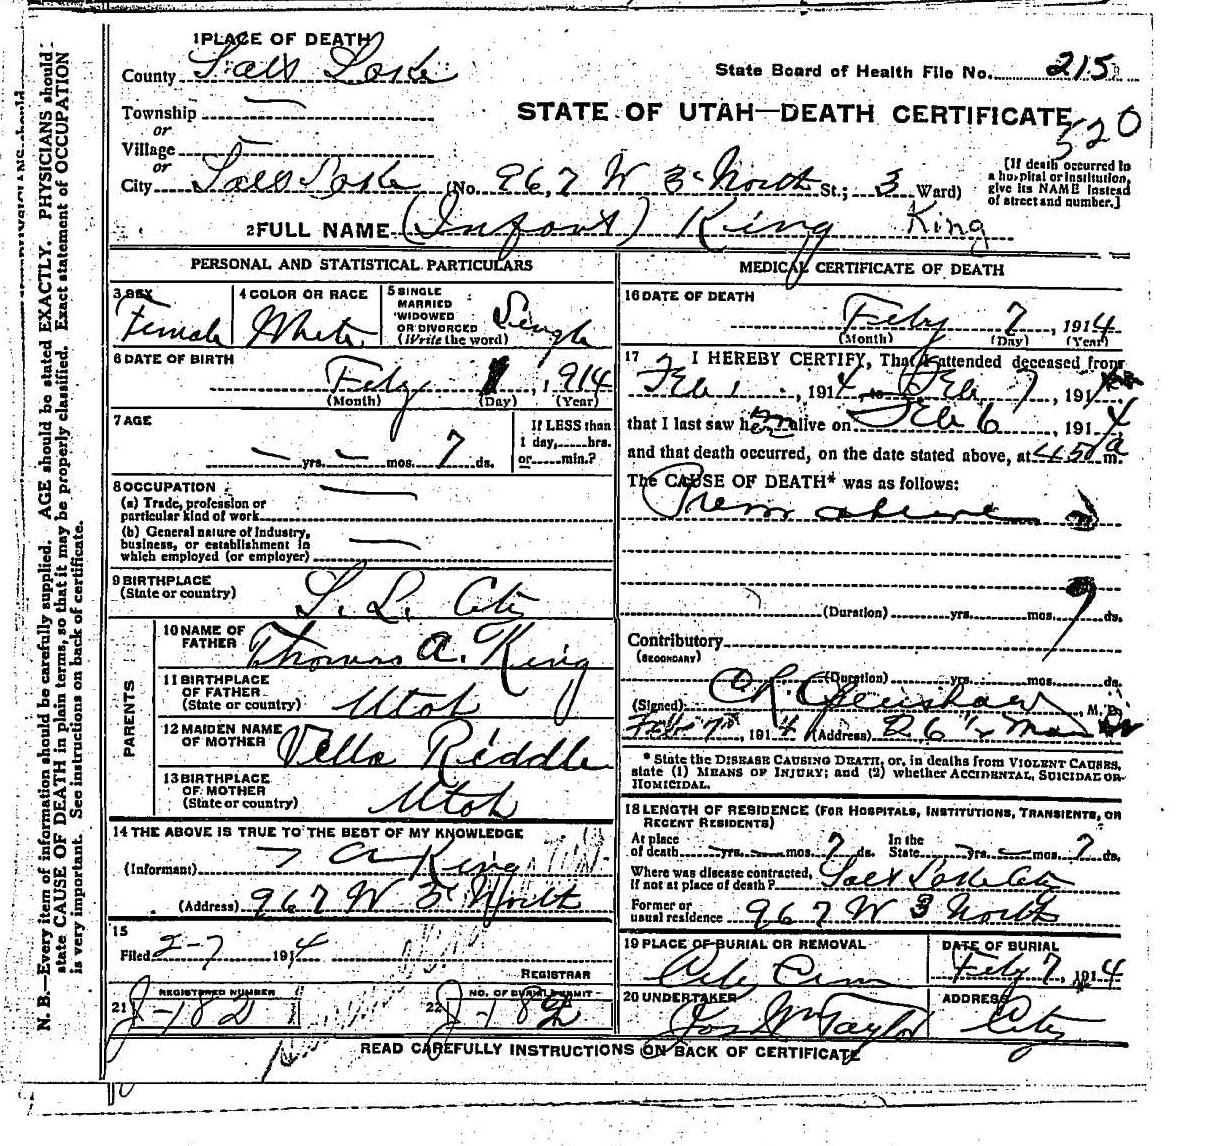 1 PLACE OF DEATH
County Salt Lake
State Board of Health File No. 215
Township —
or
STATE OF UTAH—DEATH CERTIFICATE
520
Village —
or
City Salt Lake (No. 967 W 3 North St.; 3 Ward)
[If death occurred in a hospital or institution, give its NAME instead of street and number.]
2 FULL NAME (Infant) King King
PERSONAL AND STATISTICAL PARTICULARS
3 SEX
Female
4 COLOR OR RACE
White
5 SINGLE
MARRIED
WIDOWED
OR DIVORCED
(Write the word)
Single
6 DATE OF BIRTH
Feby 1, 1914
(Month) (Day) (Year)
7 AGE
— yrs. — mos. 7 ds.
If LESS than
1 day, hrs.
or min.?
8 OCCUPATION —
(a) Trade, profession or
particular kind of work
(b) General nature of industry,
business, or establishment in
which employed (or employer) —
9 BIRTHPLACE
(State or country) S. L. City
PARENTS
10 NAME OF
FATHER Thomas A. King
11 BIRTHPLACE
OF FATHER
(State or country) Utah
12 MAIDEN NAME
OF MOTHER Vella Riddle
13 BIRTHPLACE
OF MOTHER
(State or country) Utah
14 THE ABOVE IS TRUE TO THE BEST OF MY KNOWLEDGE
(Informant) T A King
(Address) 967 W 3 North
15
Filed 2-7 1914
REGISTRAR
21 REGISTERED NUMBER
J-182
22 NO. OF BURIAL PERMIT
J-182
MEDICAL CERTIFICATE OF DEATH
16 DATE OF DEATH
Feby 7, 1914
(Month) (Day) (Year)
17 I HEREBY CERTIFY, That I attended deceased from
Feb 1, 1914, to Feb 7, 191
that I last saw her alive on Feb 6, 1914
and that death occurred, on the date stated above, at m.
The CAUSE OF DEATH* was as follows:
Prem
(Duration) yrs. mos. 7 ds.
Contributory
(SECONDARY)
(Duration) yrs. mos. ds.
(Signed) M. D.
Feb 7, 1914 (Address)
* State the DISEASE CAUSING DEATH, or, in deaths from VIOLENT CAUSES,
state (1) MEANS OF INJURY; and (2) whether ACCIDENTAL, SUICIDAL OR
HOMICIDAL.
18 LENGTH OF RESIDENCE (FOR HOSPITALS, INSTITUTIONS, TRANSIENTS, OR
RECENT RESIDENTS)
At place
of death — yrs. — mos. 7 ds. In the
State — yrs. — mos. 7 ds.
Where was disease contracted,
If not at place of death? Salt Lake City
Former or
usual residence 967 W 3 North
19 PLACE OF BURIAL OR REMOVAL
City Cem
DATE OF BURIAL
Feby 7, 1914
20 UNDERTAKER
Jos Wm Taylor
ADDRESS
City
READ CAREFULLY INSTRUCTIONS ON BACK OF CERTIFICATE
N. B.—Every item of information should be carefully supplied. AGE should be stated EXACTLY. PHYSICIANS should
state CAUSE OF DEATH in plain terms, so that it may be properly classified. Exact statement of OCCUPATION
is very important. See instructions on back of certificate.